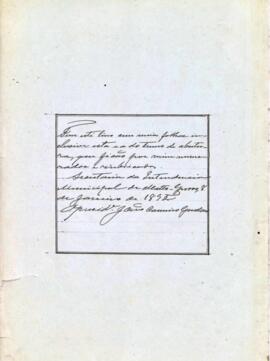 Tem este livro cem meia folhas in-
clusive esta e a do termo de abertu-
ra, que ficão por mim nume-
radas e rubricadas.
Secretaria da Intendencia
Municipal de Matto-Grosso, 8
de Janeiro de 1892
João